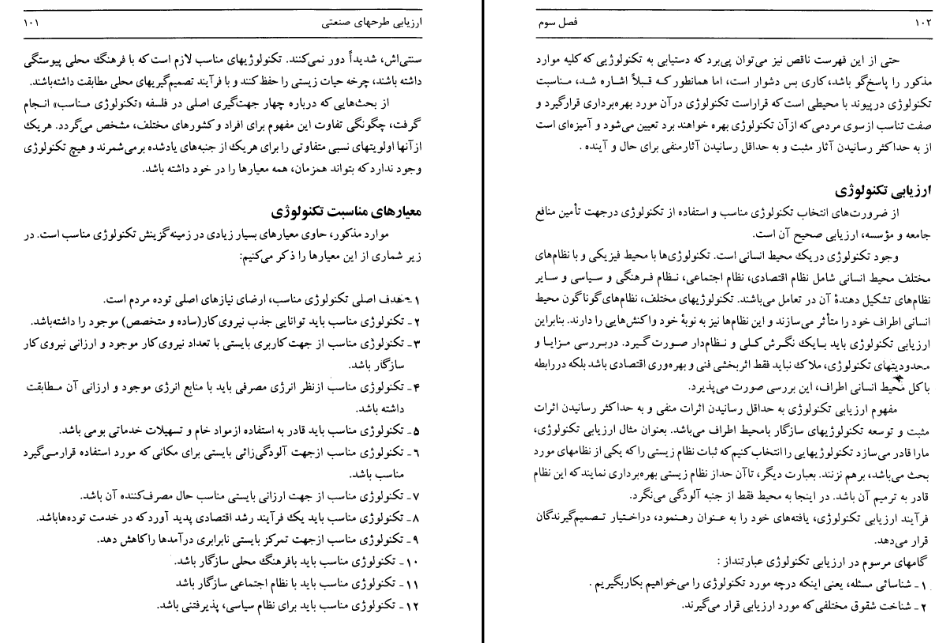 ارزیابی طرحهای صنعتی ۱۰۱
سنتی‌اش، شدیداً دور نمی‌کنند. تکنولوژیهای مناسب لازم است که با فرهنگ محلی پیوستگی
داشته باشند، چرخه حیات زیستی را حفظ کنند و با فرآیند تصمیم‌گیریهای محلی مطابقت داشته‌باشند.
از بحث‌هایی که درباره چهار جهت‌گیری اصلی در فلسفه «تکنولوژی مناسب» انجام
گرفت، چگونگی تفاوت این مفهوم برای افراد و کشورهای مختلف، مشخص می‌گردد. هریک
از آنها اولویتهای نسبی متفاوتی را برای هریک از جنبه‌های یادشده برمی‌شمرند و هیچ تکنولوژی
وجود ندارد که بتواند همزمان، همه معیارها را در خود داشته باشد.
معیارهای مناسبت تکنولوژی
موارد مذکور، حاوی معیارهای بسیار زیادی در زمینه گزینش تکنولوژی مناسب است. در
زیر شماری از این معیارها را ذکر می‌کنیم:
۱- هدف اصلی تکنولوژی مناسب، ارضای نیازهای اصلی توده مردم است.
۲- تکنولوژی مناسب باید توانایی جذب نیروی کار (ساده و متخصص) موجود را داشته‌باشد.
۳- تکنولوژی مناسب از جهت کاربری بایستی با تعداد نیروی کار موجود و ارزانی نیروی کار
سازگار باشد.
۴- تکنولوژی مناسب ازنظر انرژی مصرفی باید با منابع انرژی موجود و ارزانی آن مطابقت
داشته باشد.
۵- تکنولوژی مناسب باید قادر به استفاده ازمواد خام و تسهیلات خدماتی بومی باشد.
۶- تکنولوژی مناسب ازجهت آلودگی‌زائی بایستی برای مکانی که مورد استفاده قرار می‌گیرد
مناسب باشد.
۷- تکنولوژی مناسب از جهت ارزانی بایستی مناسب حال مصرف‌کننده آن باشد.
۸- تکنولوژی مناسب باید یک فرآیند رشد اقتصادی پدید آورد که در خدمت توده‌هاباشد.
۹- تکنولوژی مناسب ازجهت تمرکز بایستی نابرابری درآمدها را کاهش دهد.
۱۰- تکنولوژی مناسب باید بافرهنگ محلی سازگار باشد.
۱۱- تکنولوژی مناسب باید با نظام اجتماعی سازگار باشد
۱۲- تکنولوژی مناسب باید برای نظام سیاسی، پذیرفتنی باشد.
۱۰۲ فصل سوم
حتی از این فهرست ناقص نیز می‌توان پی‌برد که دستیابی به تکنولوژیی که کلیه موارد
مذکور را پاسخ‌گو باشد، کاری بس دشوار است، اما همانطور که قبلاً اشاره شد، مناسبت
تکنولوژی درپیوند با محیطی است که قراراست تکنولوژی درآن مورد بهره‌برداری قرارگیرد و
صفت تناسب ازسوی مردمی که ازآن تکنولوژی بهره خواهند برد تعیین می‌شود و آمیزه‌ای است
از به حداکثر رسانیدن آثار مثبت و به حداقل رسانیدن آثارمنفی برای حال و آینده .
ارزیابی تکنولوژی
از ضرورت‌های انتخاب تکنولوژی مناسب و استفاده از تکنولوژی درجهت تأمین منافع
جامعه و مؤسسه، ارزیابی صحیح آن است.
وجود تکنولوژی دریک محیط انسانی است. تکنولوژی‌ها با محیط فیزیکی و با نظام‌های
مختلف محیط انسانی شامل نظام اقتصادی، نظام اجتماعی، نظام فرهنگی و سیاسی و سایر
نظام‌های تشکیل دهندهٔ آن در تعامل می‌باشند. تکنولوژیهای مختلف، نظام‌های گوناگون محیط
انسانی اطراف خود را متأثر می‌سازند و این نظام‌ها نیز به نوبهٔ خود واکنش‌هایی را دارند. بنابراین
ارزیابی تکنولوژی باید بایک نگرش کلی و نظام‌دار صورت گیرد. دربررسی مزایا و
محدودیتهای تکنولوژی، ملاک نباید فقط اثربخشی فنی و بهره‌وری اقتصادی باشد بلکه دررابطه
باکل محیط انسانی اطراف، این بررسی صورت می‌پذیرد.
مفهوم ارزیابی تکنولوژی به حداقل رسانیدن اثرات منفی و به حداکثر رسانیدن اثرات
مثبت و توسعه تکنولوژیهای سازگار بامحیط اطراف می‌باشد. بعنوان مثال ارزیابی تکنولوژی،
مارا قادر می‌سازد تکنولوژیهایی را انتخاب کنیم که ثبات نظام زیستی را که یکی از نظامهای مورد
بحث می‌باشد، برهم نزنند. بعبارت دیگر، تاآن حداز نظام زیستی بهره‌برداری نمایند که این نظام
قادر به ترمیم آن باشد. در اینجا به محیط فقط از جنبه آلودگی می‌نگرد.
فرآیند ارزیابی تکنولوژی، یافته‌های خود را به عنوان رهنمود، دراختیار تصمیم‌گیرندگان
قرار می‌دهد.
گامهای مرسوم در ارزیابی تکنولوژی عبارتنداز :
۱- شناسائی مسئله، یعنی اینکه درچه مورد تکنولوژی را می‌خواهیم بکاربگیریم .
۲- شناخت شقوق مختلفی که مورد ارزیابی قرار می‌گیرند.